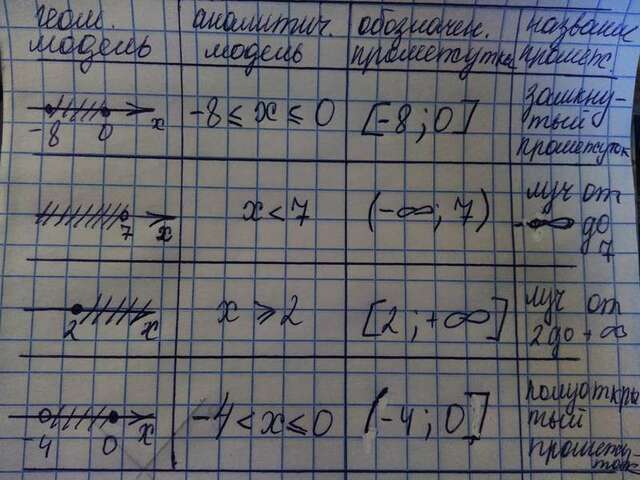 геом. модель | аналитич. модель | обозначен. промежутка | названи промеж.
-8 0 x | -8 ⩽ x ⩽ 0 | [-8; 0] | замкну-
тый
промежуток
7 x | x < 7 | (-∞; 7) | луч от
-∞ до
7
2 x | x ⩾ 2 | [2; +∞] | луч от
2 до +∞
-4 0 x | -4 < x ⩽ 0 | (-4; 0] | полуоткры
тый
промежу-
ток